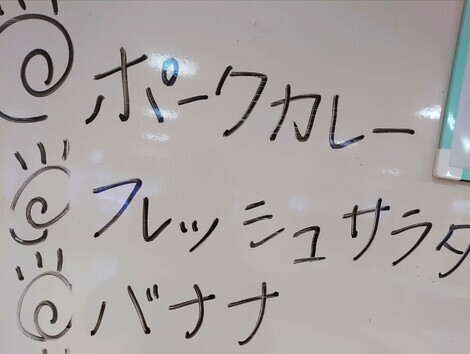 ポークカレー
フレッシュサラダ
バナナ